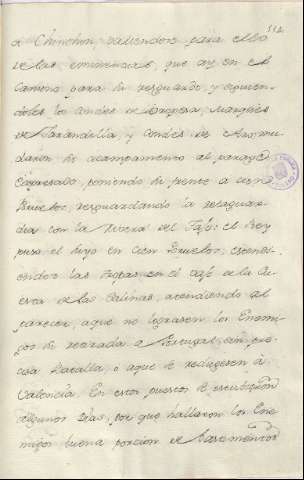 112
de Chinchon, valiendose para ello
de las eminencias, que ay en el
Camino para su resguardo, y siguien-
doles los Condes de Oropesa, Marques
de Jarandilla, y Condes de
su acampamento al parage
expresado, poniendo su frente a cien-
Pozuelos, resguardando la retaguar-
dia con la rivera del Tajo: el Rey
puso el suyo en Cien Pozuelos, esten-
diendo las Tropas en el de la Cu-
esta de las Salinas, atendiendo al
parecer, a que no lograsen los Enemi-
gos su retirada a Portugal, sin pre-
cisa Batalla, o a que se redugesen à
Valencia. En estos puestos se
algunos dias, por que hallaron los Ene-
migos buena porcion de bastimentos